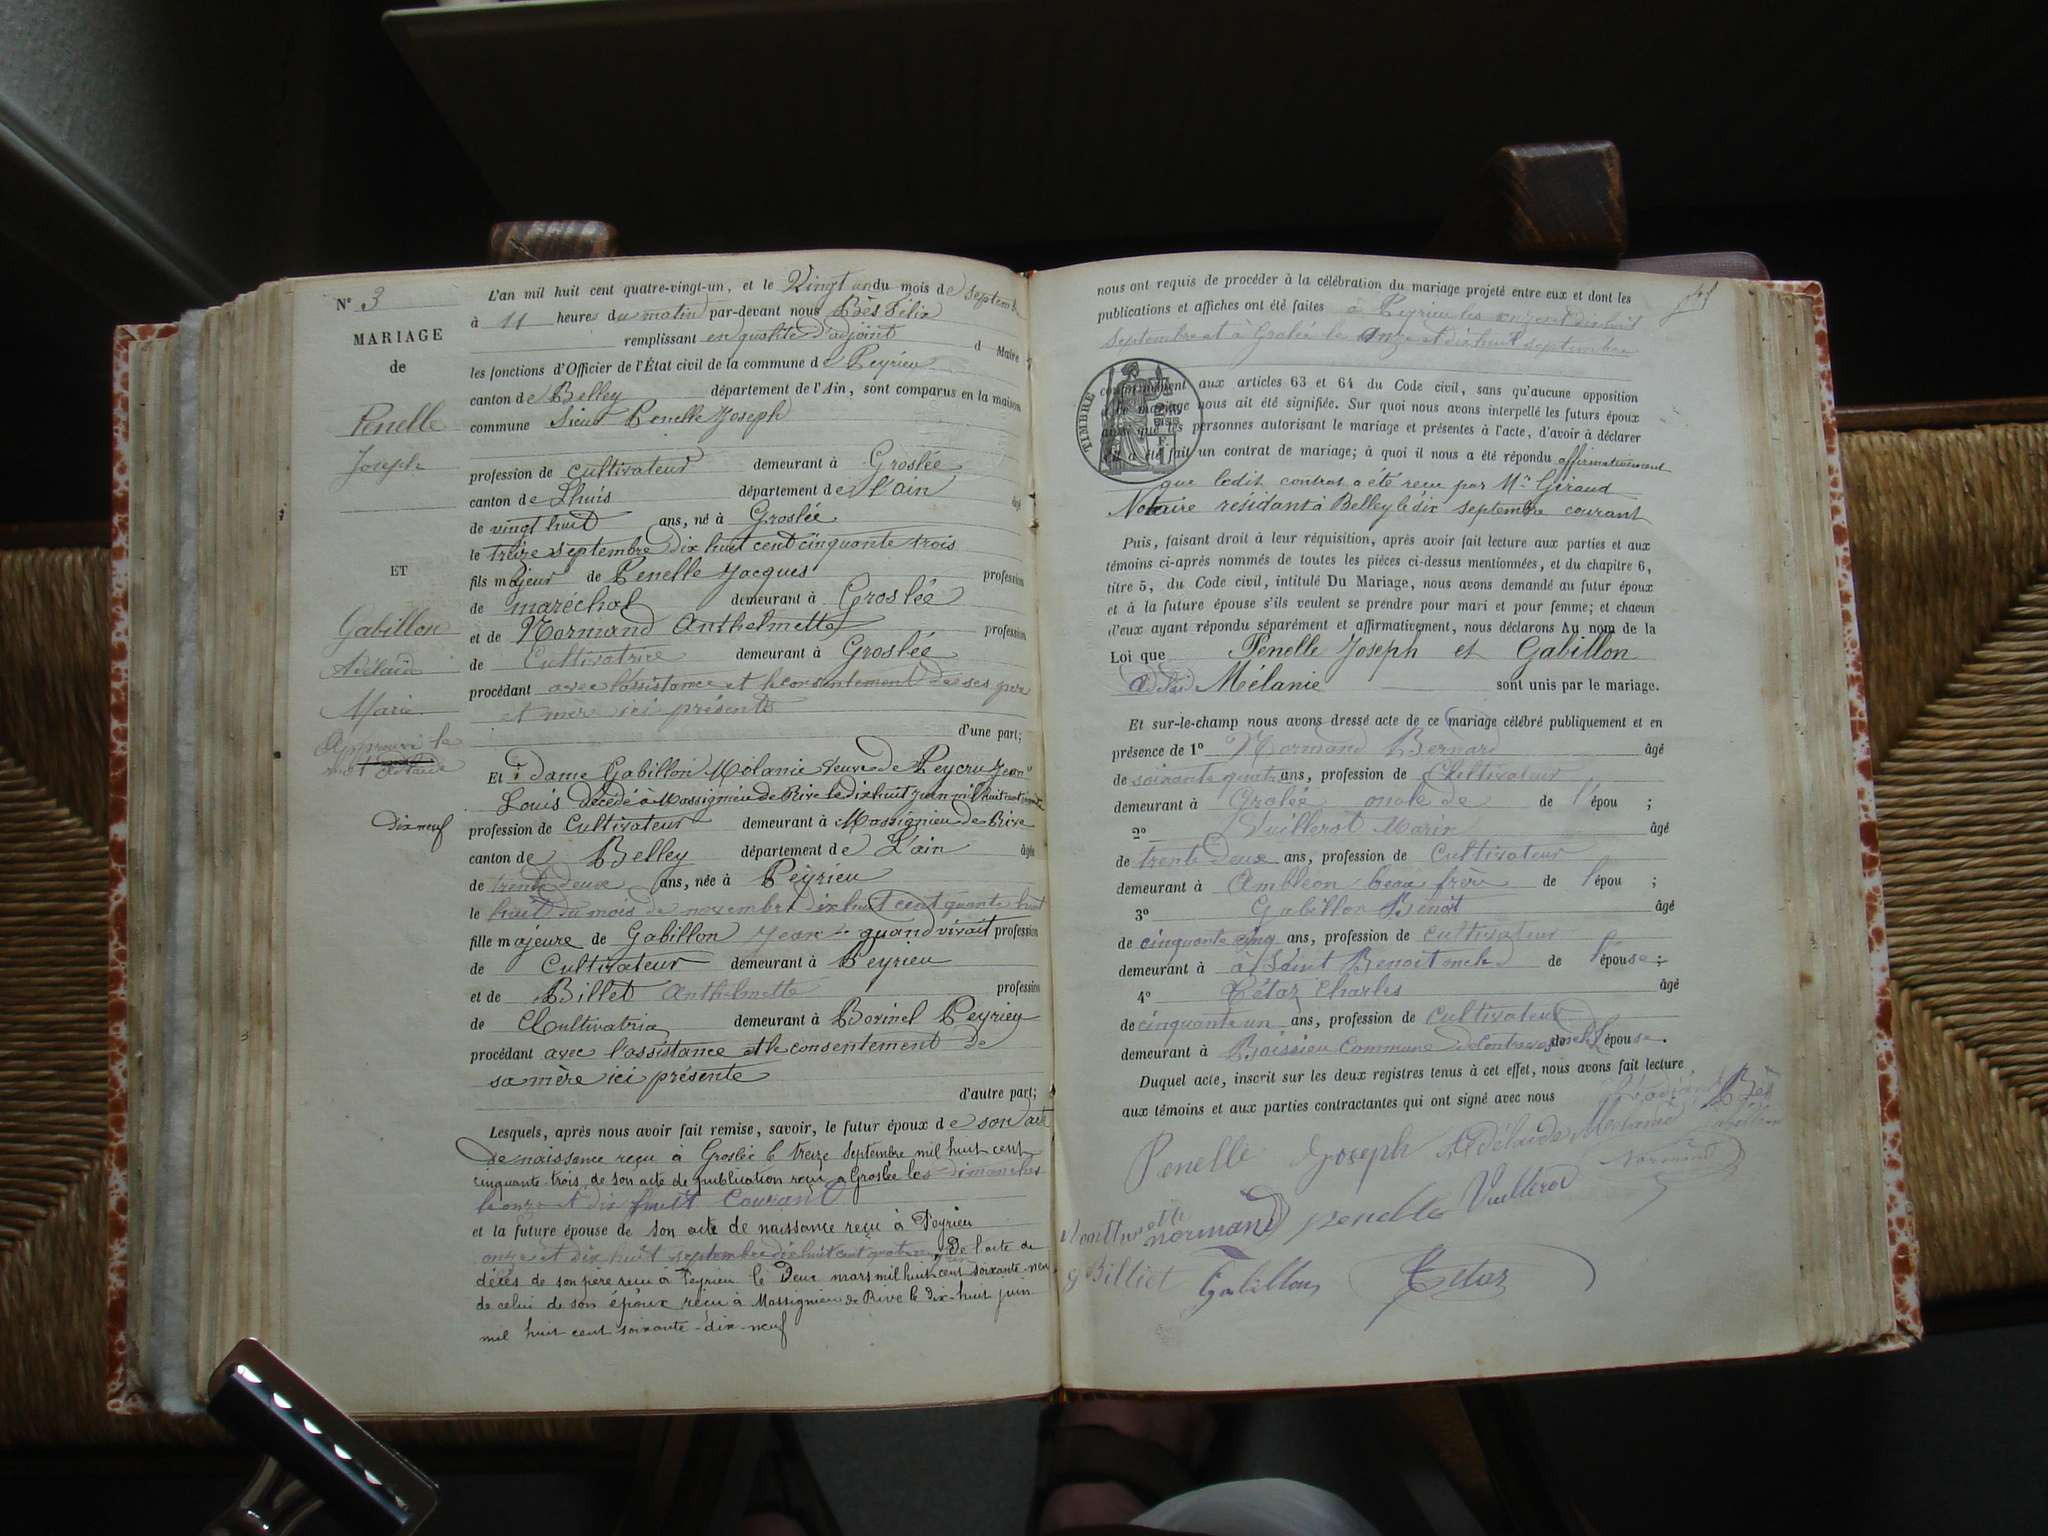 N° 3
MARIAGE
de
Penelle
Joseph
ET
Gabillon
Adélaïde
Marie
Approuvé le
mot
Dix neuf
L'an mil huit cent quatre-vingt-un, et le Vingt un du mois de Septemb
à 11 heure du matin par-devant nous Bès Félix
remplissant en qualité d'adjoint d Maire
les fonctions d'Officier de l'État civil de la commune de Peyrieu
canton de Belley département de l'Ain, sont comparus en la maison
commune Sieur Penelle Joseph
profession de cultivateur demeurant à Groslée
canton de Lhuis département de l'ain âgé
de vingt huit ans, né à Groslée
le treize septembre dix huit cent cinquante trois
fils majeur de Penelle Jacques profession
de maréchal demeurant à Groslée
et de Normand Anthelmette profession
de Cultivatrice demeurant à Groslée
procédant avec l'assistance et le consentement de ses père
et mère ici présents
d'une part;
Et dame Gabillon Mélanie Veuve de Peycru Jean
Louis décédé à Massignieu de Rive le dix huit juin mil huit cent
profession de Cultivateur demeurant à Massignieu de Rive
canton de Belley département de L'ain âgée
de trente deux ans, née à Peyrieu
le huit du mois de novembre dix huit cent quarante huit
fille majeure de Gabillon Jean quand vivait profession
de Cultivateur demeurant à Peyrieu
et de Billet Anthelmette profession
de Cultivatrice demeurant à Peyrieu
procédant avec l'assistance et le consentement de
sa mère ici présente
d'autre part;
Lesquels, après nous avoir fait remise, savoir, le futur époux de son acte
de naissance reçu à Groslée le treize Septembre mil huit cent
cinquante-trois, de son acte de publication reçu à Groslée les dimanches
le onze et dix huit Courant
et la future épouse de son acte de naissance reçu à Peyrieu
onze et dix huit septembre dix huit cent quatre vingt un, De l'acte de
décès de son père reçu à Peyrieu le Deux mars mil huit cent soixante-neuf
de celui de son époux reçu à Massignieu de Rive le dix-huit juin
mil huit cent soixante-dix-neuf
nous ont requis de procéder à la célébration du mariage projeté entre eux et dont les
publications et affiches ont été faites à Peyrieu les onze et dix huit
Septembre et à Grolée le onze et dix huit septembre
TIMBRE
conformément aux articles 63 et 64 du Code civil, sans qu'aucune opposition
mariage nous ait été signifiée. Sur quoi nous avons interpellé les futurs époux
ainsi que les personnes autorisant le mariage et présentes à l'acte, d'avoir à déclarer
s'il a été fait un contrat de mariage; à quoi il nous a été répondu affirmativement
que ledit contrat a été reçu par Me Giraud
Notaire résidant à Belley le dix septembre courant
Puis, faisant droit à leur réquisition, après avoir fait lecture aux parties et aux
témoins ci-après nommés de toutes les pièces ci-dessus mentionnées, et du chapitre 6,
titre 5, du Code civil, intitulé Du Mariage, nous avons demandé au futur époux
et à la future épouse s'ils veulent se prendre pour mari et pour femme; et chacun
d'eux ayant répondu séparément et affirmativement, nous déclarons Au nom de la
Loi que Penelle Joseph et Gabillon
Mélanie sont unis par le mariage.
Et sur-le-champ nous avons dressé acte de ce mariage célébré publiquement et en
présence de 1° Normand Bernard âgé
de soixante quatre ans, profession de Cultivateur
demeurant à Grolée oncle de de l'épou ;
2° Vuillerot Marin âgé
de trente deux ans, profession de Cultivateur
demeurant à Ambléon beau frère de l'épou ;
3° Gabillon Benoît âgé
de cinquante cinq ans, profession de cultivateur
demeurant à à Saint Benoit oncle de l'épouse ;
4° Tétaz Charles âgé
de cinquante un ans, profession de Cultivateur
demeurant à Boissieu Commune de Contrevoz de l'épouse.
Duquel acte, inscrit sur les deux registres tenus à cet effet, nous avons fait lecture
aux témoins et aux parties contractantes qui ont signé avec nous
Bès
Penelle Joseph Adélaïde Mélanie Gabillon
Normand
normand penelle Vuillerod
Billiet Gabillon Tetaz